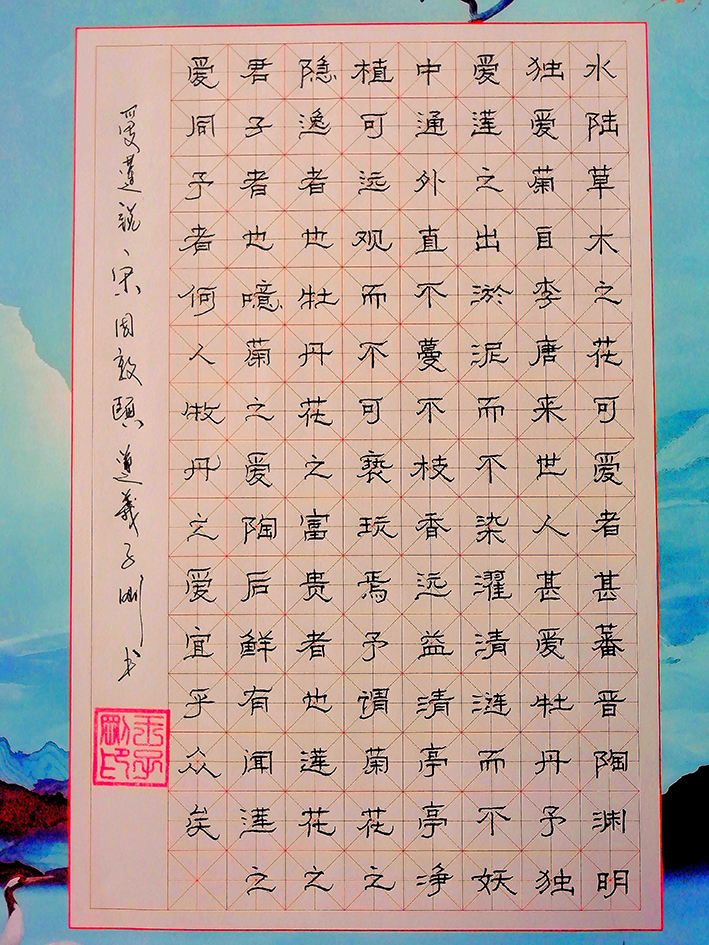 水陆草木之花可爱者甚蕃晋陶渊明
独爱菊自李唐来世人甚爱牡丹予独
爱莲之出淤泥而不染濯清涟而不妖
中通外直不蔓不枝香远益清亭亭净
植可远观而不可亵玩焉予谓菊花之
隐逸者也牡丹花之富贵者也莲花之
君子者也噫菊之爱陶后鲜有闻莲之
爱同予者何人牧丹之爱宜乎众矣
爱莲說、宋周敦颐 遵義子刚书
王子剛印